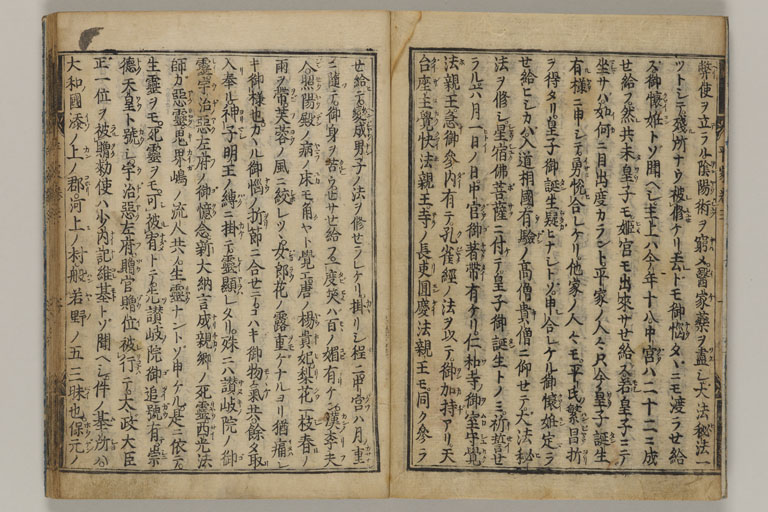 幣使ヲ立ラル陰陽術ヲ窮メ醫家藥ヲ盡シ大法秘法一
ツトシテ殘所ナウ被修ケリ去ドモ御惱タヽニモ渡ラせ給
ス御懷姙トソ聞ヘシ主上ハ今年十八中宮ハ二十二ニ成
せ給フ然共未皇子モ姫宮モ出來サせ給ス若皇子ニテ
坐サハ如何ニ目出度カラント平家ノ人々只今皇子誕生
有樣ニ申シテ勇悅合レケリ他家ノ人々モ平氏繁昌折
ヲ得タリ皇子御誕生疑ヒナシトソ申合レケル御懷姙定ラ
せ給ヒシカバ入道相國有驗ノ高僧貴僧ニ仰せテ大法秘
法ヲ修シ星宿佛菩薩ニ付テ皇子御誕生トノミ祈誓せ
ラル六月一日ノ日中宮御著帶有ケリ仁和寺御室守覺
法親王急御參內有テ孔雀經ノ法ヲ以テ御加持アリ天
台座主覺快法親王寺ノ長吏圓慶法親王モ同ク參ラ
せ給テ變成男子ノ法ヲ修せラレケリ掛リシ程ニ中宮ハ月ノ重
ニ隨テ御身ヲ苦ウせサせ給フ一度笑ハ百ノ媚有ケン漢李夫
人照陽殿ノ病ノ床モ角ヤト覺エ唐ノ楊貴妃梨花一枝春ノ
雨ヲ帶芙蓉ノ風ニ絞レツヽ女郎花ノ露重ケナルヨリ猶痛シ
キ御樣也カヽル御惱ノ折節ニ合せテコハキ御物氣共餘タ取
入奉ル神子明王ノ縛ニ掛テ靈顯レタリ殊ニハ讚岐院ノ御
靈宇治惡左府ノ御憶念新大納言成親卿ノ死靈西光法
師カ惡靈鬼界嶋ノ流人共ノ生靈ナントソ申ケル是ニ依テ
生靈ヲモ死靈ヲモ可被宥トテ先讚岐院御追號有テ崇
德天皇ト號シ宇治惡左府贈官贈位被行テ太政大臣
正一位ヲ被贈勅使ハ少內記維基トソ聞ヘシ件ノ墓所ハ
大和國添ノ上ノ郡河上ノ村般若野ノ五三昧也保元ノ